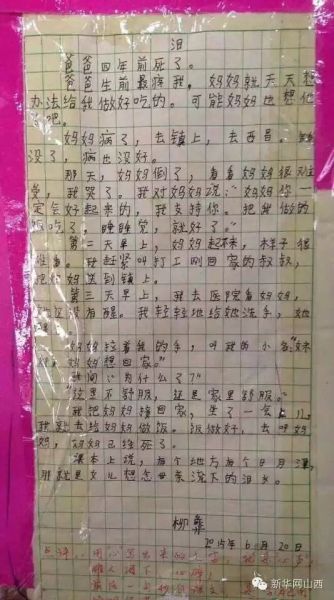 泪
爸爸四年前死了。
爸爸生前最疼我。妈妈就天天想
办法给我做好吃的。可能妈妈也想他
了吧。
妈妈病了，去镇上，去西昌。
没了，病也没好。
那天，妈妈倒了，看看妈妈很难
受，我哭了。我对妈妈说："妈妈你一
定会好起来的，我支持你。把我做的
饭吃了，睡睡觉，就好了。"
第二天早上，妈妈起不来，样子很
难看。我赶紧叫打工刚回家的叔叔，
把妈妈送到镇上。
第三天早上，我去医院看妈妈，
她还没有醒。我轻轻地给她洗手，她
醒了。
妈妈拉着我的手，叫我的小名：
妈妈想回家。"
我问："为什么了？"
"这里不舒服，还是家里舒服。"
我把妈妈接回家，坐了一会儿，
我就去给妈妈做饭。饭做好，去叫妈
妈，妈妈已经死了。
课本上说，有个地方有个日月潭，
那就是女儿想念母亲流下的泪水。
柳彝
2015年6月20日
点评：用心写出来的
新华网山西